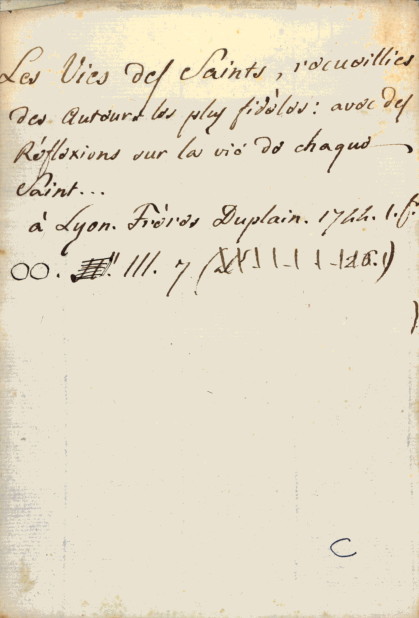 Les Vies des Saints, recueillies
des Auteurs les plus fidèles: avec des
Réfléxions sur la vie de chaque
Saint...
à Lyon. Frères Duplain. 1744. 1. f.
OO. III. 7
C